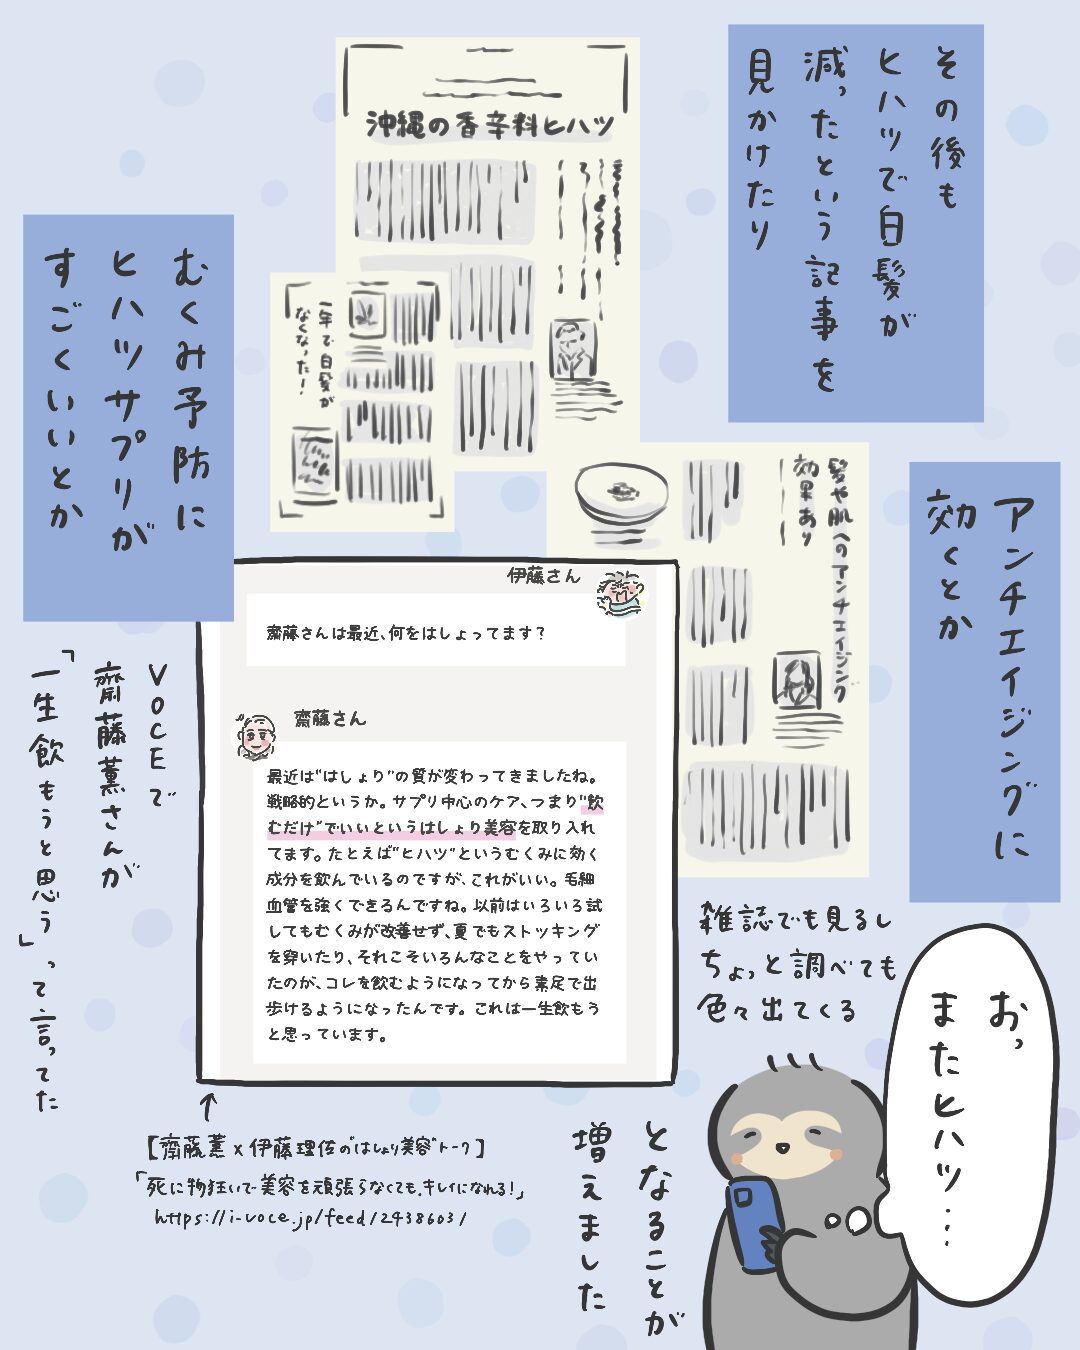 その後も
ヒハツで白髪が
減ったという記事を
見かけたり
沖縄の香辛料ヒハツ
一年で白髪が
なくなった！
むくみ予防に
ヒハツサプリが
すごくいいとか
アンチエイジングに
効くとか
髪や肌へのアンチエイジング
効果あり
伊藤さん
齋藤さんは最近、何をはしょってます？
齋藤さん
最近は“はしょり”の質が変わってきましたね。
戦略的というか。サプリ中心のケア、つまり“飲
むだけ”でいいというはしょり美容を取り入れ
てます。たとえば“ヒハツ”というむくみに効く
成分を飲んでいるのですが、これがいい。毛細
血管を強くできるんですね。以前はいろいろ試
してもむくみが改善せず、夏でもストッキング
を穿いたり、それこそいろんなことをやってい
たのが、コレを飲むようになってから素足で出
歩けるようになったんです。これは一生飲もう
と思っています。
VOCEで
齋藤薫さんが
「一生飲もうと思う」って言ってた
【齋藤薫×伊藤理佐の“はしょり美容”トーク】
「死に物狂いで美容を頑張らなくても、キレイになれる！」
https://i-voce.jp/feed/2438603/
雑誌でも見るし
ちょっと調べても
色々出てくる
おっ
またヒハツ…
となることが
増えました